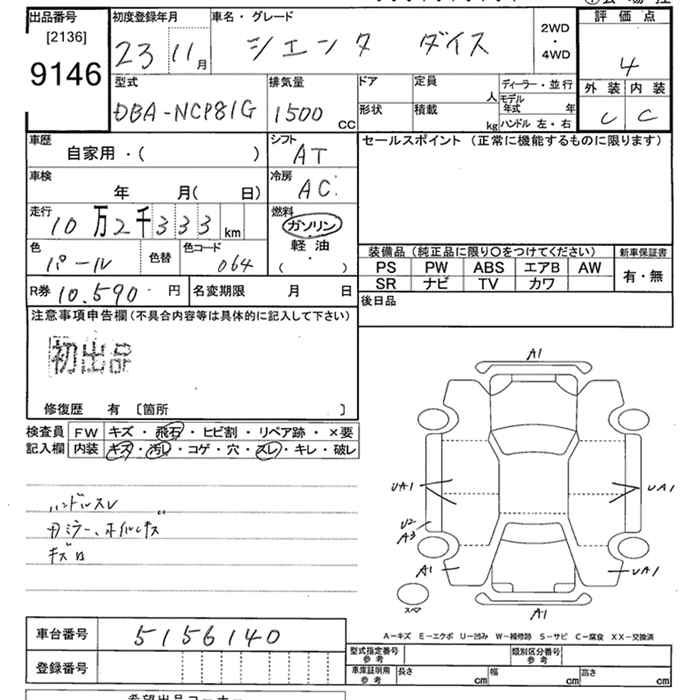 出品番号
[2136]
9146
初度登録年月
23 11月
車名・グレード
シエンタ ダイス
2WD
・
4WD
評価点
4
外装 内装
C C
型式
DBA-NCP81G
排気量
1500 CC
ドア
形状
定員 人
積載 kg
ディーラー・並行
モデル年式 年
ハンドル 左・右
車歴
自家用・( )
シフト
AT
セールスポイント (正常に機能するものに限ります)
車検
年 月( 日)
冷房
AC
走行
10万2千333km
燃料
ガソリン
・
軽油
( ・ )
色
パール
色替
色コード
064
装備品(純正品に限り〇をつけてください)
新車保証書
PS PW ABS エアB AW
SR ナビ TV カワ
有・無
R券 10.590 円
名変期限 月 日
後日品
注意事項申告欄(不具合内容等は具体的に記入して下さい)
初出品
修復歴 有 〔箇所 〕
検査員記入欄
FW キズ・飛石・ヒビ割・リペア跡・×要
内装 キズ・汚レ・コゲ・穴・スレ・キレ・破レ
ハンドルスレ
キズ
A1
UA1
UA1
U2
A3
A1
UA1
A1
スペア
A-キズ E-エクボ U-凹み W-補修跡 S-サビ C-腐食 XX-交換済
車台番号
5156140
登録番号
型式指定番号 参考
類別区分番号 参考
車庫証明用 参考
長さ cm
幅 cm
高さ cm